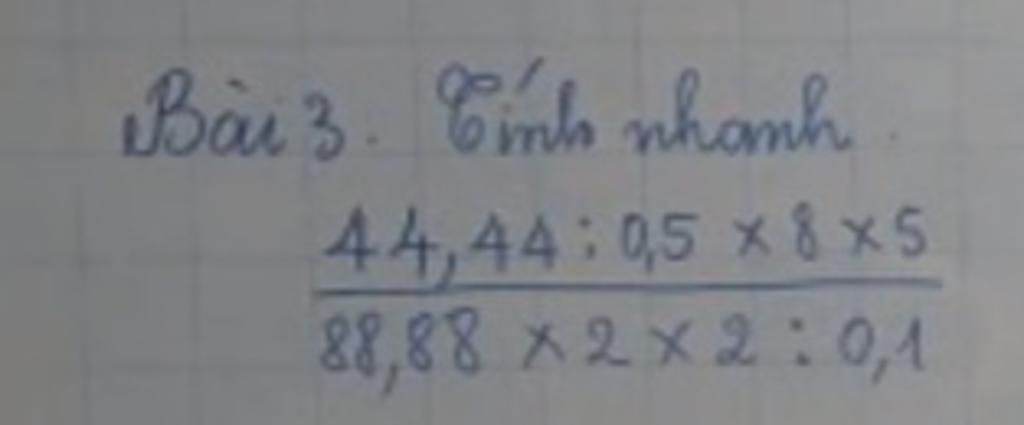 Bài 3. Tính nhanh.
44,44 : 0,5 × 8 × 5
88,88 × 2 × 2 : 0,1